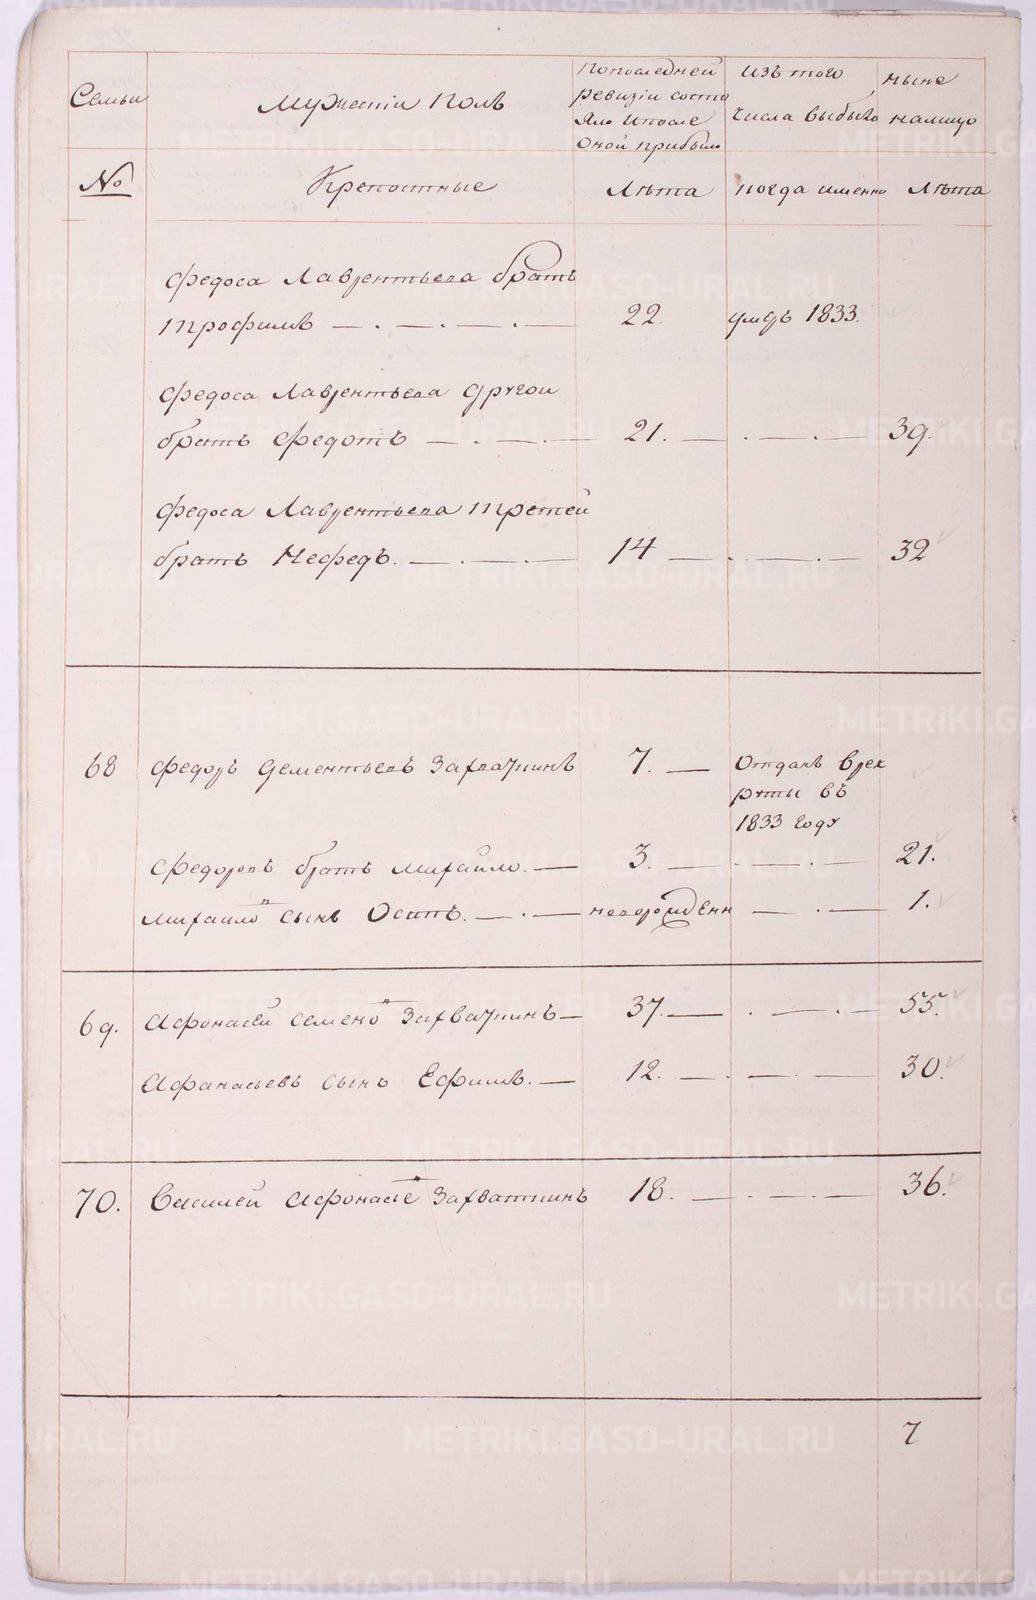 Семьи
Мужескiй полъ
Попоследней
ревизiи состо
яло ипосле
оной прибыло
Изъ того
числа выбыло
ныне
налицо
№
Крепостные
Лѣта
когда именно
Лѣта
Федоса Лаврентьева братъ
Трофимъ — . — . — . — 22. умръ 1833.
Федоса Лаврентьева другой
братъ Федотъ — . — . — 21. — . — . — 39.
Федоса Лаврентьева третей
братъ Нефедъ. — . — . — 14 — . — . — 32
68 Федоръ Дементьевъ Захваткинъ 7. — Отданъ врек
руты въ
1833 году
Федоровъ братъ Михайло. — 3. — . — . — 21.
Михайло въ сынъ Осипъ. — . — новорожденн — . — 1.
69. Афонасей Семено въ Захваткинъ — 37. — . — . — 55.
Афанасьевъ сынъ Ефимъ. — 12. — . — . — 30.
70. Василей Афонасье въ Захваткинъ 18. — . — . — 36.
7
METRIKI.GASO-URAL.RU